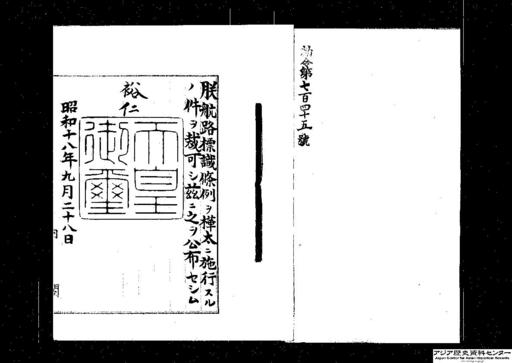 勅令第七百四十五號
朕航路標識條例ヲ樺太ニ施行スル
ノ件ヲ裁可シ茲ニ之ヲ公布セシム
裕仁
天皇御璽
昭和十八年九月二十八日
内閣
アジア歴史資料センター
Japan Center for Asian Historical Records